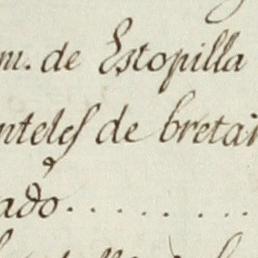 m. de Estopilla
nteles de bretañ
ado. . . . . . . .